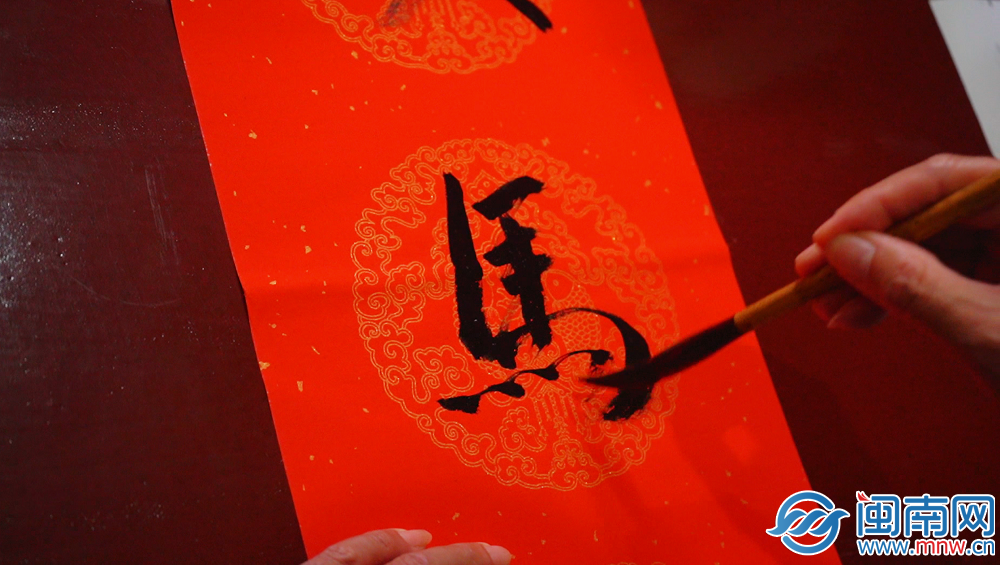 馬
闽南网
www.mnw.cn